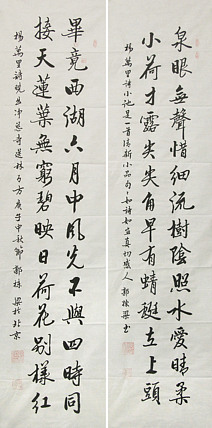 泉眼無聲惜細流樹陰照水愛晴柔
小荷才露尖尖角早有蜻蜓立上頭
楊萬里詩小池是一首清新小品句々如詩如畫真切感人
畢竟西湖六月中風光不與四時同
接天蓮葉無窮碧映日荷花別樣紅
楊萬里詩曉出淨慈寺送林子方庚子中秋節郭棟梁於北京